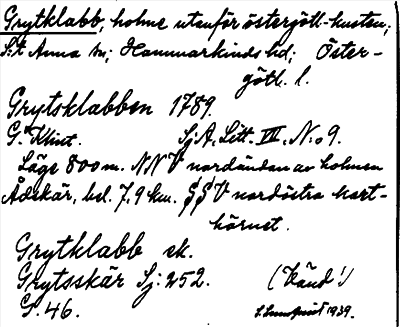 Grytklabb, holme utanför östergötl-kusten;
S:t Anna sn; Hammarkinds hd; Öster-
götl. l.
Grytsklabben 1789.
G. Klint. Sj A. Litt. VII, N:o 9.
Läge 800 m. NNV nordändan av holmen
Ådskär, bel. 7,9 km. SSV nordöstra kart-
hörnet.
Grytklabb ek.
Grytsskär Sj: 252. (Känd!)
G. 46. 1939.